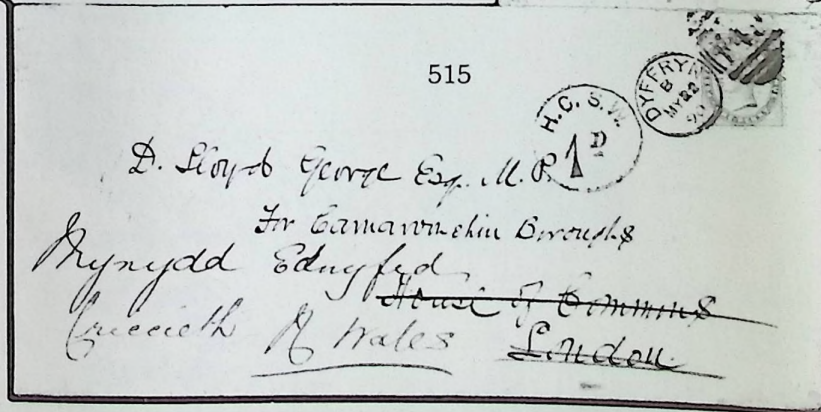 515
DYFFRYN
B
MY 22
90
H. C. S. W.
1D
D. Lloyd George Esq. M. P.
For Carnarvonshire Boroughs
Mynydd Ednyfed
House of Commons
Criccieth N Wales
London